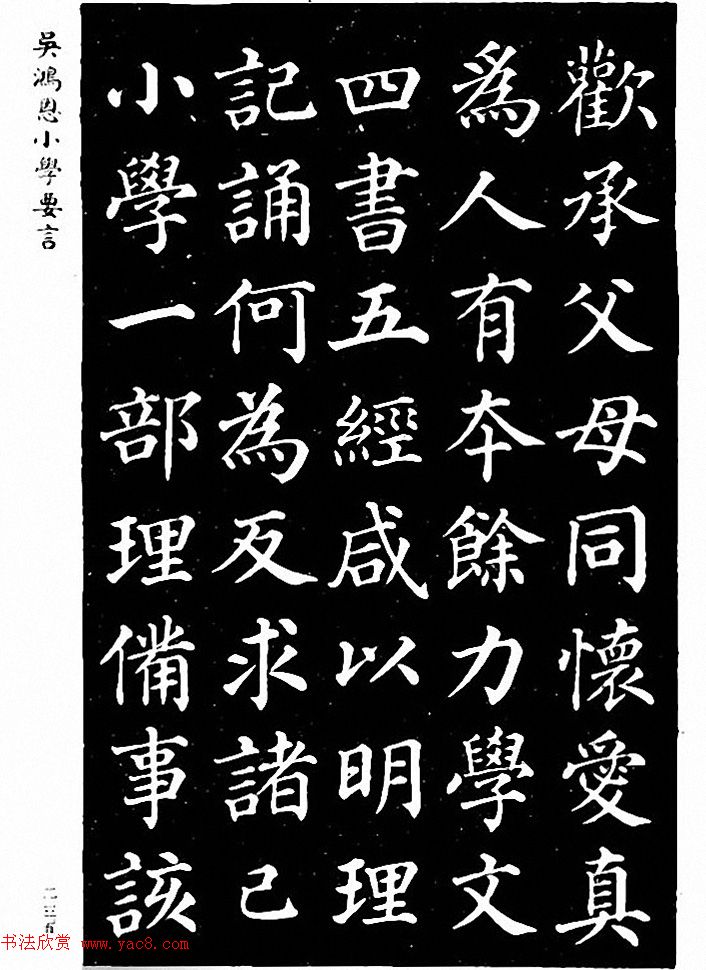 歡承父母同懷愛真
為人有本餘力學文
四書五經咸以明理
記誦何為反求諸己
小學一部理備事該
吳鴻恩小學要言
二三五
书法欣赏 www.yac8.com